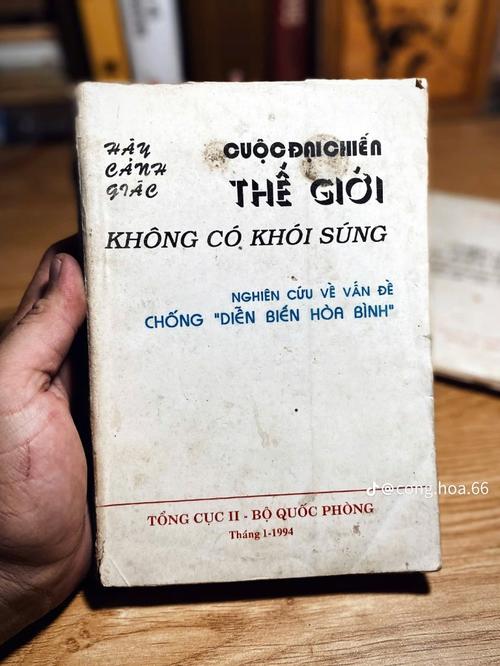 HÃY
CẢNH
GIÁC
CUỘC ĐẠI CHIẾN
THẾ GIỚI
KHÔNG CÓ KHÓI SÚNG
NGHIÊN CỨU VỀ VẤN ĐỀ
CHỐNG "DIỄN BIẾN HÒA BÌNH"
TỔNG CỤC II - BỘ QUỐC PHÒNG
Tháng 1-1994
@cong.hoa.66